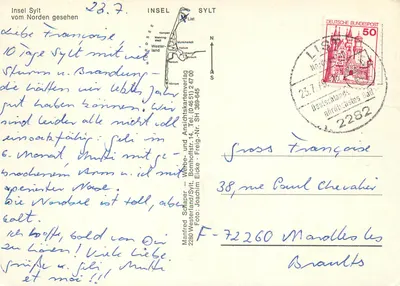 Insel Sylt
vom Norden gesehen
23.7.
INSEL SYLT
Liebe Françoise
10 Tage Sylt mit viel
Sturm u. Brandung –
die hätten wir letztes Jahr
gut haben können. Wir
sind leider alle nicht voll
einsatzfähig: geli im
6. Monat, Mutti mit ge-
brochenem Arm u. ich mit
operierter Nase.
Die Nordsee ist toll, aber
kalt.
Ich hoffe, bald von Dir
zu hören! Viele liebe
Grüße u. geli, Mutti
et moi!!
N
S
Manfred Schaper — Werbe- und Ansichtskartenverlag
2280 Westerland/Sylt, Bomhoffstr. 14, Tel. (0 46 51) 2 47 00
Foto: Joachim Eicke - Freig.-Nr. SH 369-645
DEUTSCHE BUNDESPOST
50
LIST
23.7.
Deutschlands
nördlichstes
2282
Gross Françoise
38, rue Paul Chevalier
F-72260 Marolles les
Braults